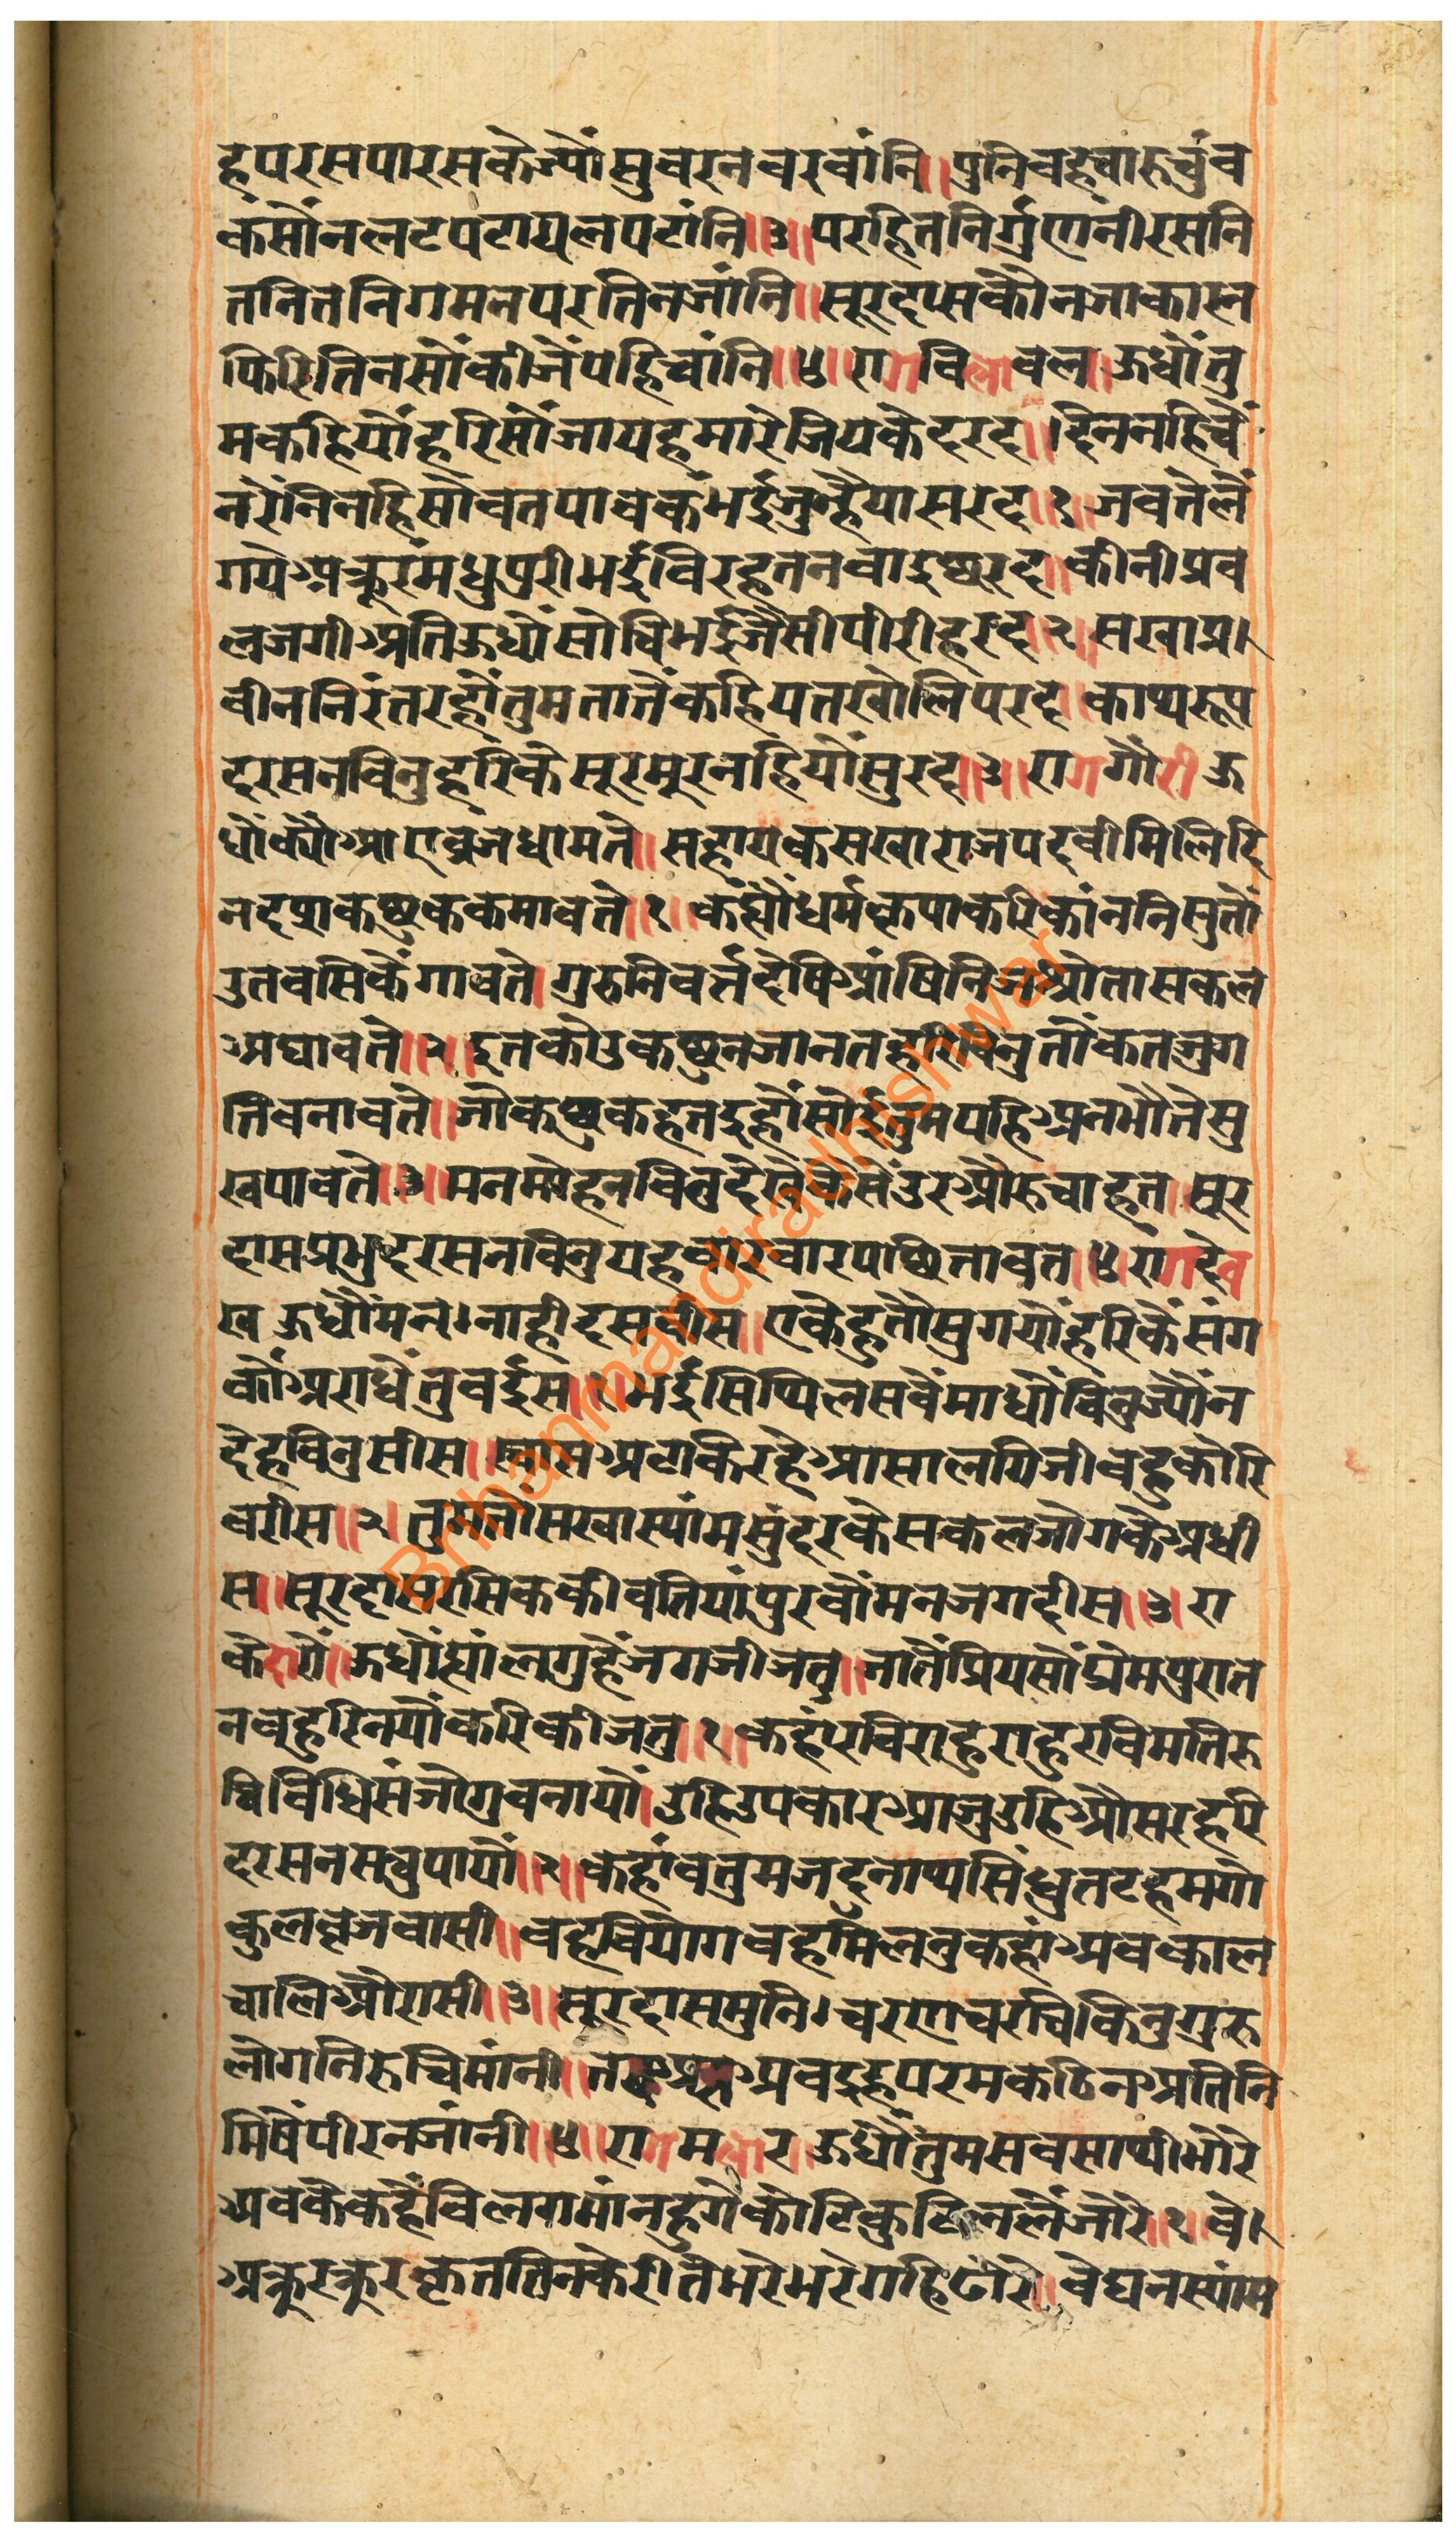 हपरसपारसकेज्यौंसुवरनवरवांनि॥पुनिवहचारुचुंव
कंसौंनलटपटायलपटांनि॥३॥परहितनिर्गुणनीरसनि
तनितनिगमनपरतिनजांनि॥सूरदासकौनजाकास्न
फिरितिनसौंकीजैंपहिचांनि॥४॥रागविलावल॥ऊधौंतु
मकहियौंहरिसौंजायहमारेजियकेदरद॥दिननहिचैं
नरैंनिनहिसोवतपावकंभईजुन्हैयासरद॥१॥जवतेलैं
गयेअक्रूरमधुपुरीभईविरहतनवाइछरद॥कीनीप्रव
लजगीअतिऊधौंसोविभईजैसीपीरीहरद॥२॥सखाप्र।
वीननिरंतरहौंतुमतातैंकहियतखोलिपरद॥क्वाथरूप
दरसनविनुहरिकेसूरमूरनहियौंसुरद॥३॥रागगौरीऊ
धौंक्यौंआएव्रजधामते॥सहायकसखाराजपदवीमिलिदि
नदशकछुककमावते॥१॥कंह्यौंधर्मकृपाकरिकांननिसुतौं
उतवसिकैंगावते॥गुरुनिवर्तदेषिआंषिनिजश्रोतासकल
अघावते॥२॥इतकोउकछुनजानतहरिविनुतौंकतजुग
तिवनावते॥जौकछुकहतइहौंसोईतुमपहिअनभौंतेसु
खपावते॥३॥मनमोहनविनुदेखेकैसेंउरऔरुचाहत॥सूर
दासप्रभुदरसनविनुयहवारवारपछितावत॥४॥रागदेव
ख ऊधौंमन।नाहीदसवीस॥एकेहुतौसुगयौंहरिकैंसंग
कौंअराधैंतुवईस॥१॥भईसिथिलसवैंमाधौंविनुज्यौंन
देहविनुसीस॥स्वासअटकिरहेआसालगिजीवहुकोरि
वरीस॥२॥तुमतौंसखास्यांमसुंदरकेसकलजोगकेअधी
स॥सूरदासरसिककीवतियांपुरवौंमनजगदीस॥३॥रा
केदारौं॥ऊधौंह्यांलगुहैंजगजीजतु॥नातैंप्रियसौंप्रेमपुरात
नवहुरिनयौंकरिकीजतु॥१॥कहंरविराहुराहुरविमतिरु
चिविधिसंजोगुवनायौं॥उहिउपकारआजुउहिऔसरहरि
दरसनसवुपायौं॥२॥कहांवतुमजदुनाथसिंधुतटहमगो
कुलव्रजवासी॥वहवियोगवहमिंलनुकहांअवकाल
चालिऔरासी॥३॥सूरदासमुनि।चरणचरचिकिनुगुरु
लोगनिरुचिमांनी॥अवदुहुपरमकठिनअतिनि
मिषेंपीरनजांनी॥४॥रागमलार॥ऊधौंतुमसवसाथीभोरे
अवकेकहैंविलगमांनहुगेकोटिकुटिलनलैंजोरे॥१॥वे।
अक्रूरक्रूरकृततिनकेरीतेभरेभरेगहिढोरे॥वेघनस्यांम
Brihanmandiradhishwar